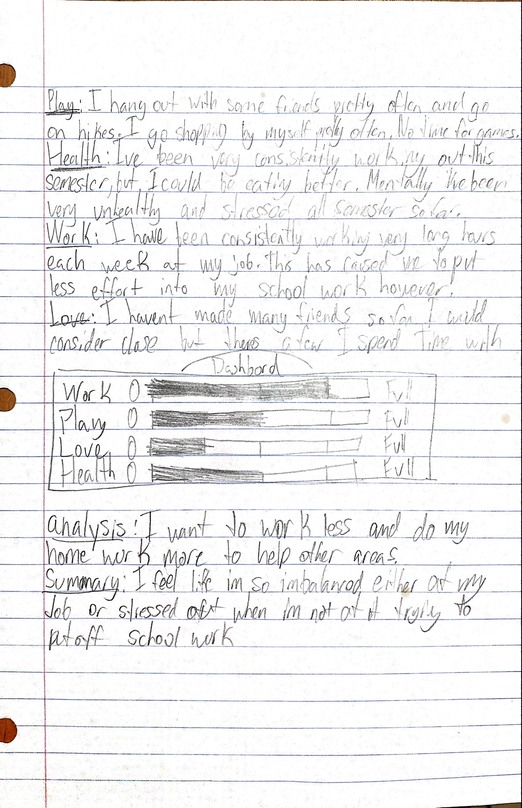 Play: I hang out with some friends pretty often and go
on hikes. I go shopping by myself pretty often. No time for games.
Health: I've been very consistently working out this
semester, but, I could be eating better. Mentally I've been
very unhealthy and stressed all semester so far.
Work: I have been consistently working very long hours
each week at my job. This has caused me to put
less effort into my school work however.
Love: I havent made many friends so far I would
consider close but theres a few I spend time with
Dashbord
Work 0 Full
Play 0 Full
Love 0 Full
Health 0 Full
analysis: I want to work less and do my
home work more to help other areas.
Summary: I feel life im so imbalanced either at my
Job or stressed out when im not at it trying to
put off school work